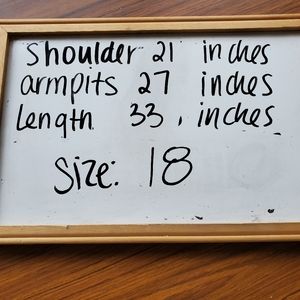 Shoulder 21 inches
armpits 27 inches
Length 33 . inches
Size: 18